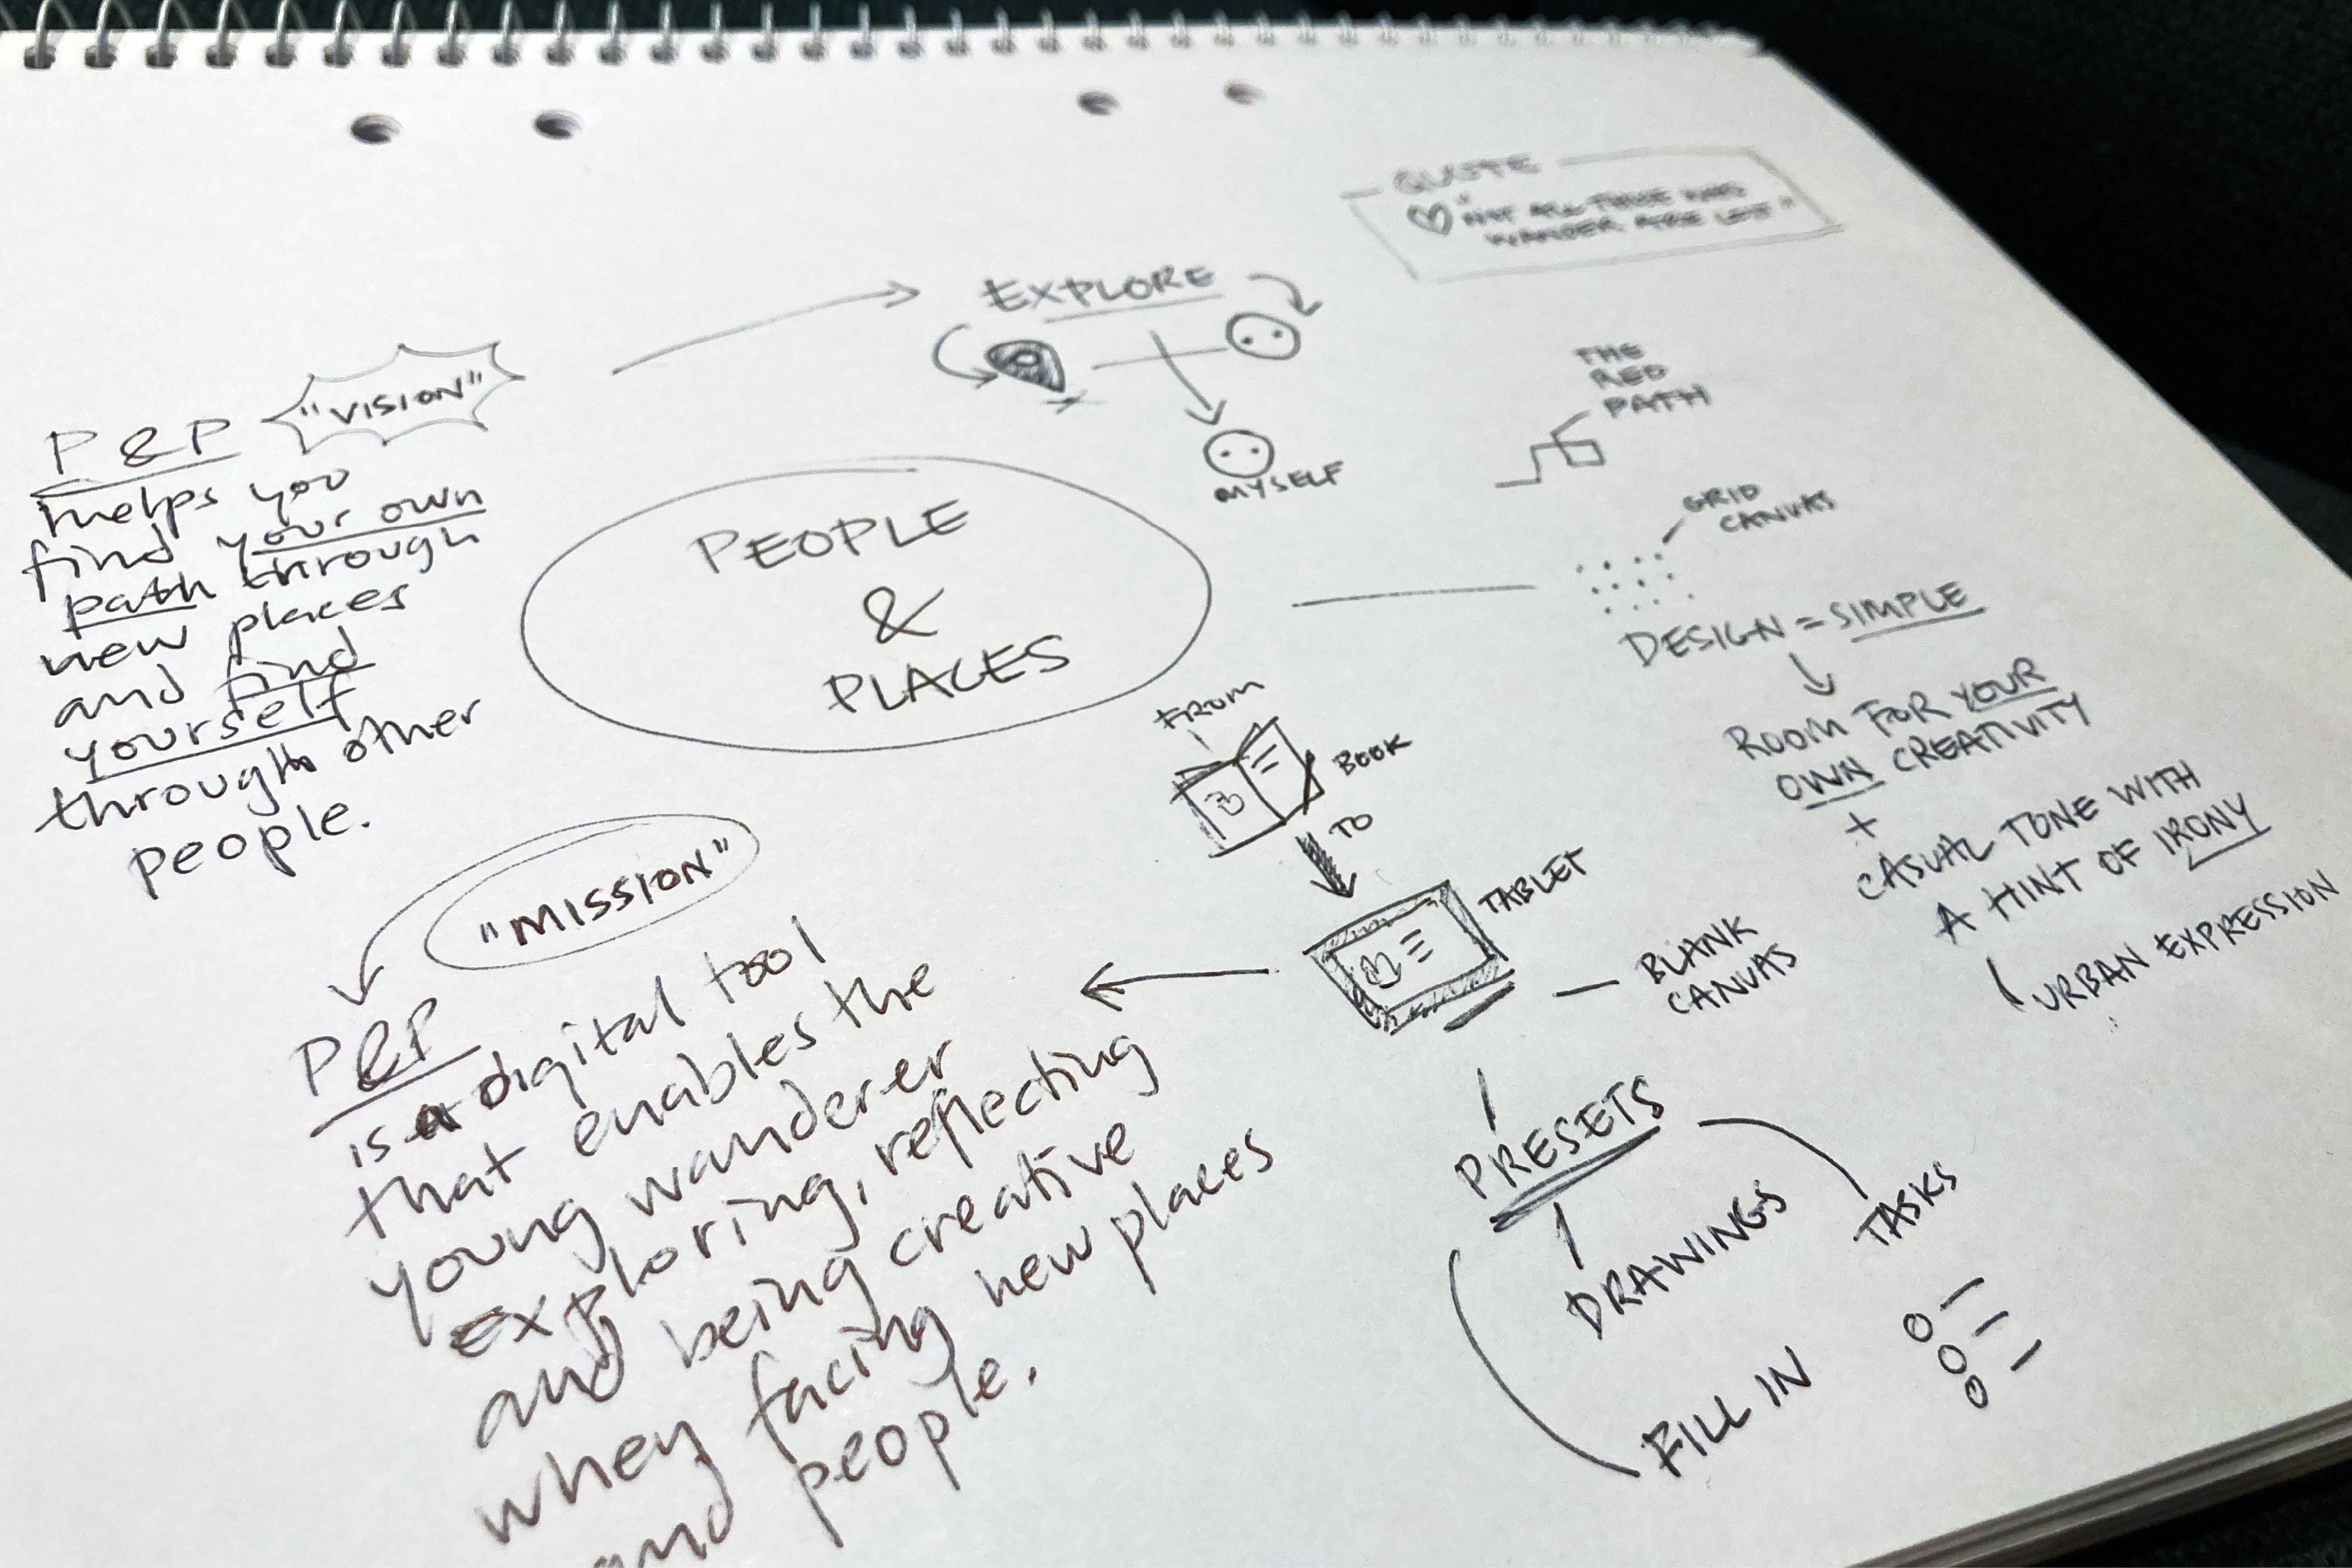 QUOTE
"NOT ALL THOSE WHO
WANDER ARE LOST"
EXPLORE
MYSELF
THE
RED
PATH
"VISION"
P & P
helps you
find your own
path through
new places
and find
yourself
through other
people.
PEOPLE
&
PLACES
GRID
CANVAS
DESIGN = SIMPLE
ROOM FOR YOUR
OWN CREATIVITY
+
CASUAL TONE WITH
A HINT OF IRONY
URBAN EXPRESSION
FROM
BOOK
TO
TABLET
BLANK
CANVAS
PRESETS
DRAWINGS
TASKS
FILL IN
"MISSION"
P&P
is a digital tool
that enables the
young wanderer
exploring, reflecting
and being creative
when facing new places
and people.